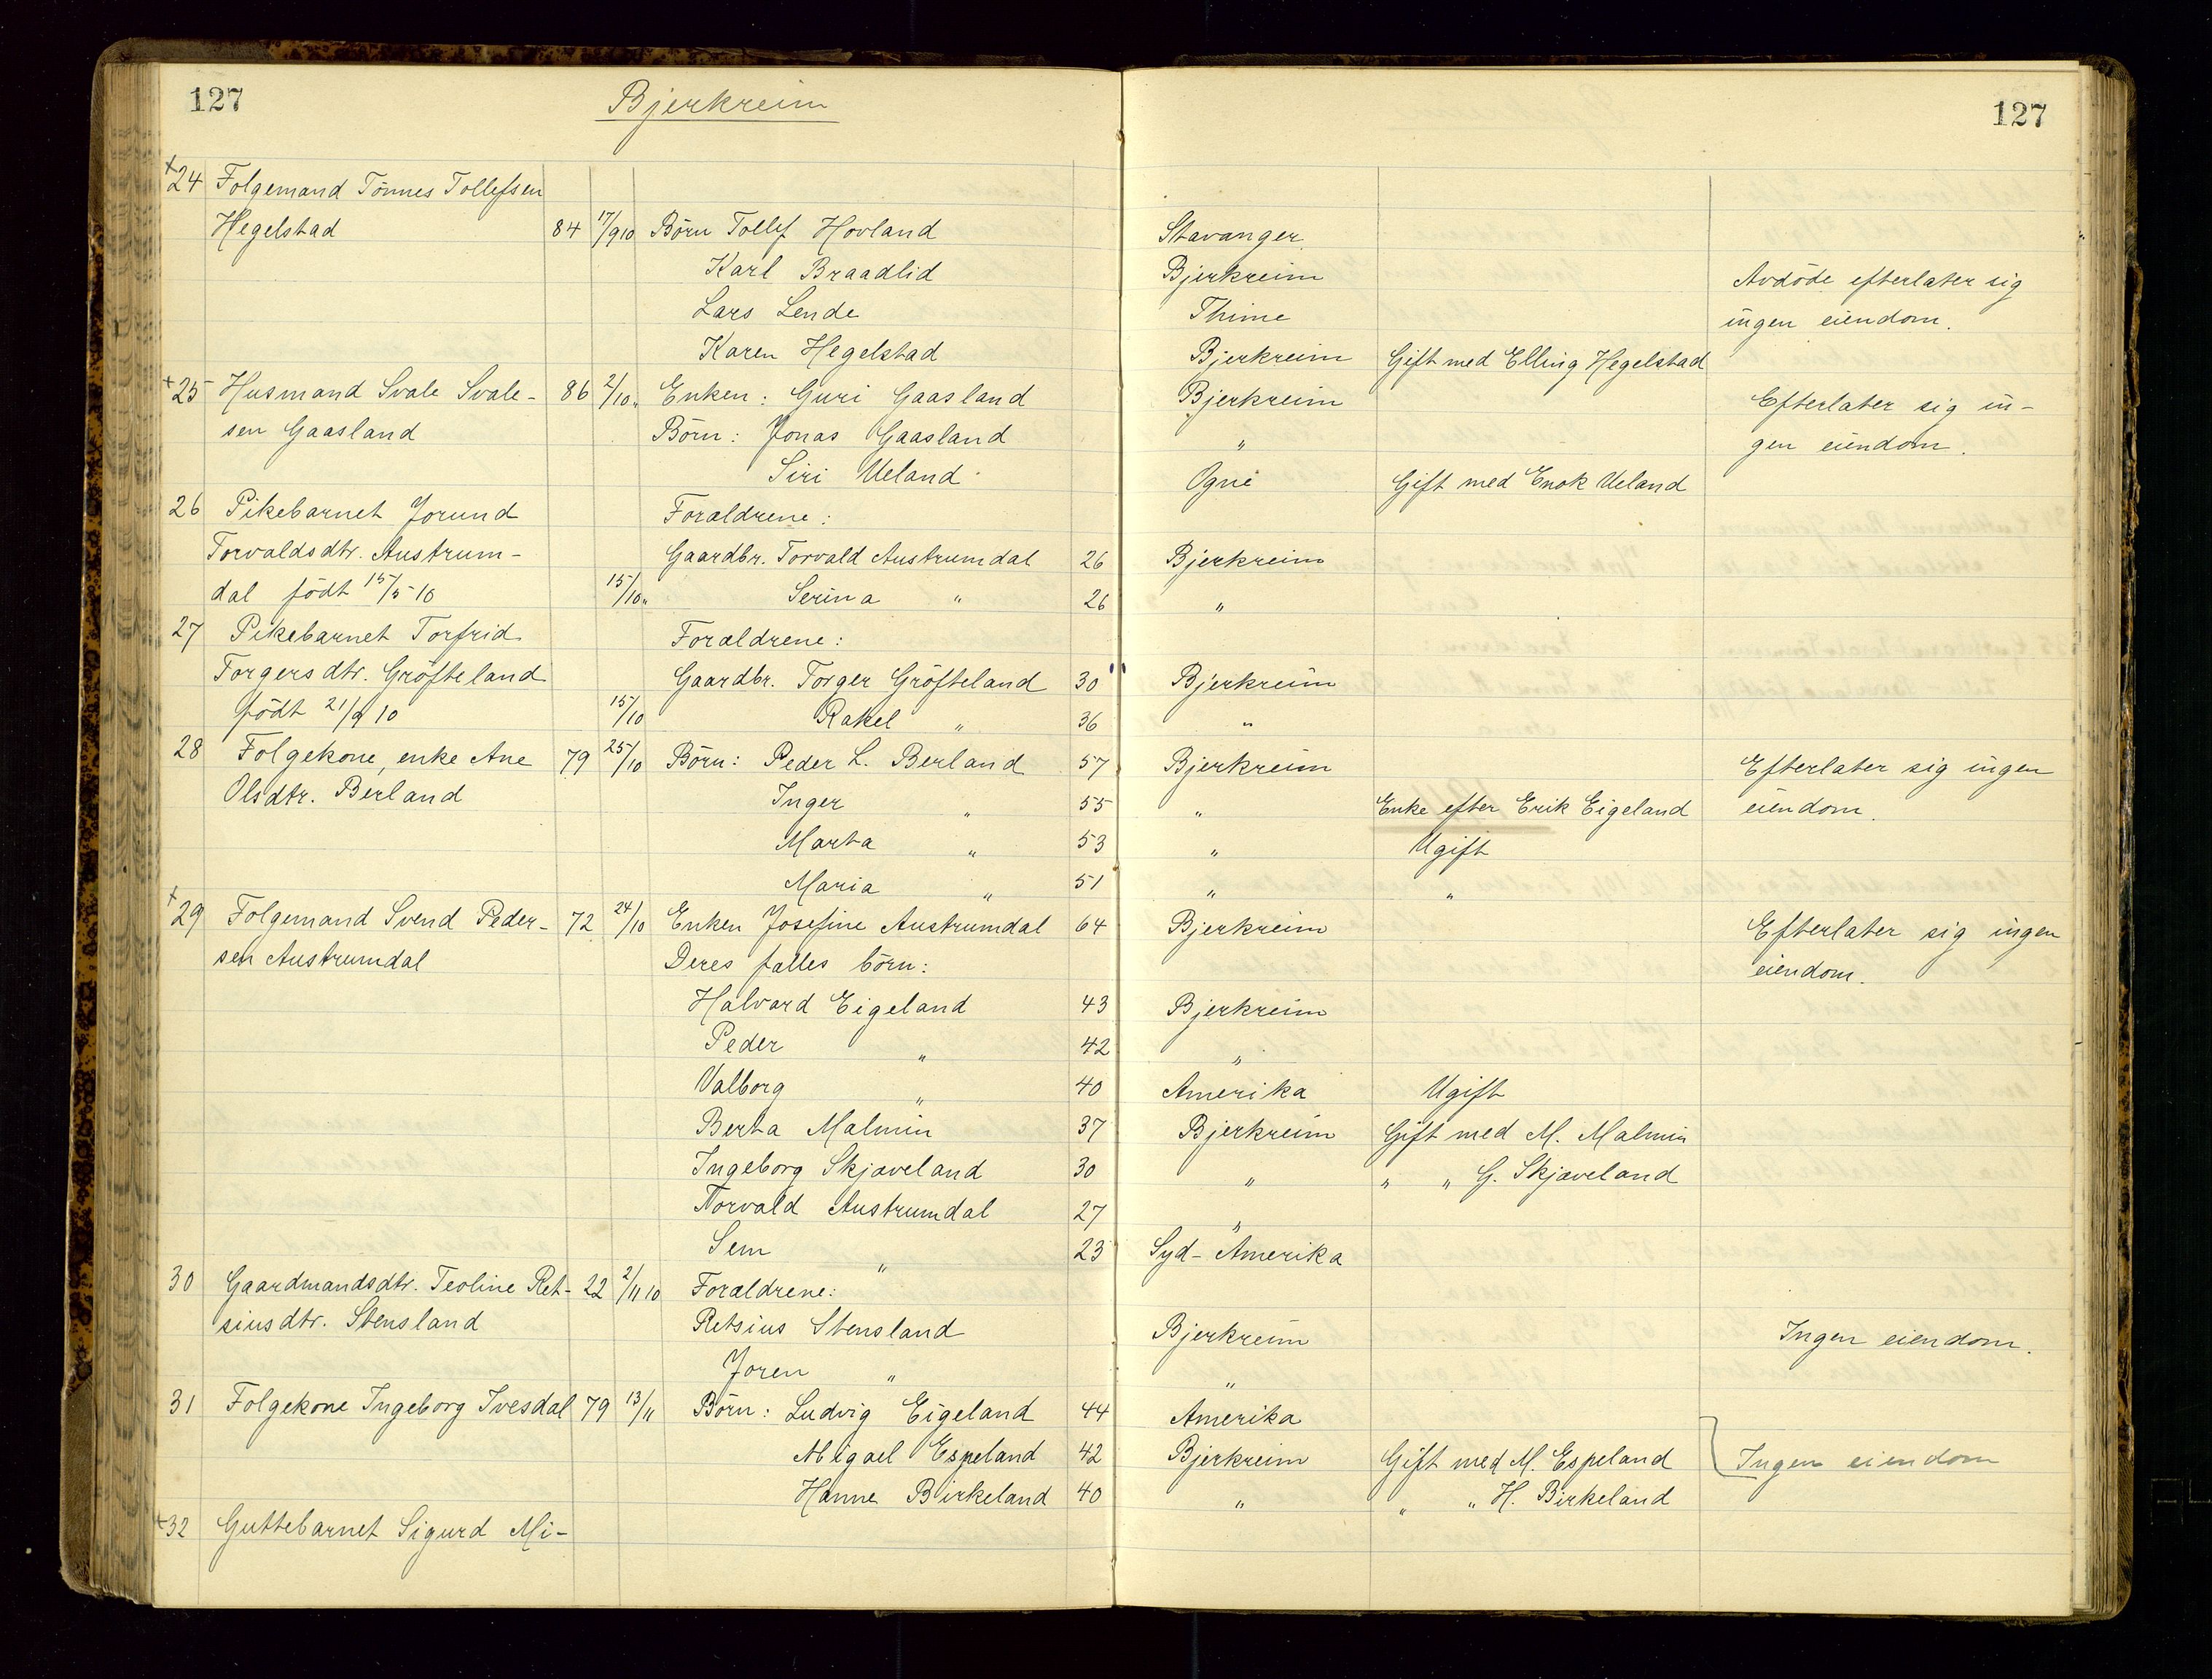 127 Bjerkreim 127
+24 Folgemand Tönnes Tollefsen
Hegelstad 84 17/9 10 Börn Tollef Hovland Stavanger
Karl Braadlid Bjerkreim Avdöde efterlater sig
Lars Lende Thime ingen eiendom.
Karen Hegelstad Bjerkreim Gift med Elling Hegelstad
+25 Husmand Svale Svale- 86 2/10 " Enken: Guri Gaasland Bjerkreim Efterlater sig in-
sen Gaasland Börn: Jonas Gaasland " gen eiendom.
Siri Ueland Ogne Gift med Enok Ueland
26 Pikebarnet Jorund Forældrene:
Torvaldsdtr. Austrum- Gaardbr. Torvald Austrumdal 26 Bjerkreim
dal födt 15/5-10 15/10 " Serina " 26 "
27 Pikebarnet Torfrid Forældrene:
Torgersdtr. Gröfteland Gaardbr. Torger Gröfteland 30 Bjerkreim
födt 21/9 10 15/10 Rakel " 36 "
28 Folgekone, enke Ane 79 25/10 Börn: Peder L. Berland 57 Bjerkreim Efterlater sig ingen
Olsdtr. Berland Inger " 55 " Enke efter Erik Eigeland eiendom.
Marta " 53 " Ugift
Maria " 51 " "
+29 Folgemand Svend Peder- 72 24/10 Enken Josefine Austrumdal 64 Bjerkreim Efterlater sig ingen
sen Austrumdal Deres fælles börn: eiendom.
Halvard Eigeland 43 Bjerkreim
Peder " 42 "
Valborg " 40 Amerika Ugift
Berta Malmin 37 Bjerkreim Gift med M. Malmin
Ingeborg Skjæveland 30 " " " G. Skjæveland
Torvald Austrumdal 27 "
Sem " 23 Syd-Amerika
30 Gaardmandsdtr. Teoline Ret- 22 2/11 10 Forældrene:
siusdtr. Stensland Retsius Stensland Bjerkreim Ingen eiendom.
Joren " "
31 Folgekone Ingeborg Ivesdal 79 13/11 Börn: Ludvig Eigeland 44 Amerika
Abigael Espeland 42 Bjerkreim Gift med M. Espeland Ingen eiendom
Hanne Birkeland 40 " " " H. Birkeland
+32 Guttebarnet Sigurd Mi-